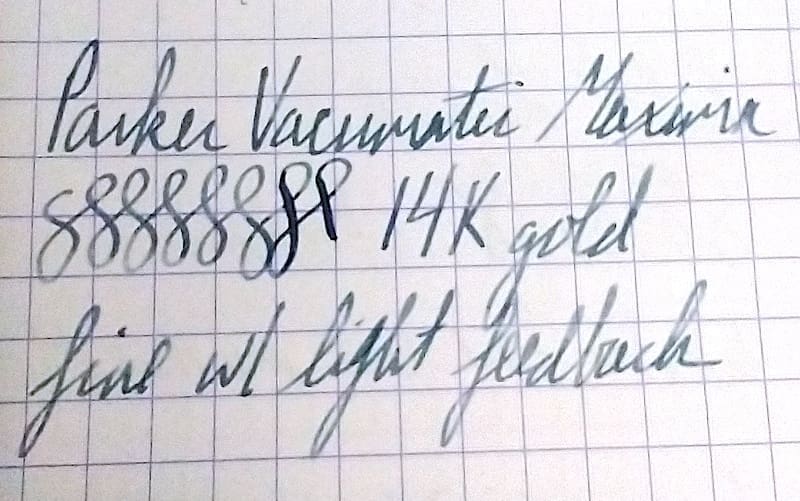 Parker Vacumatic Maxima
88888888 14K gold
fine w/ light feedback